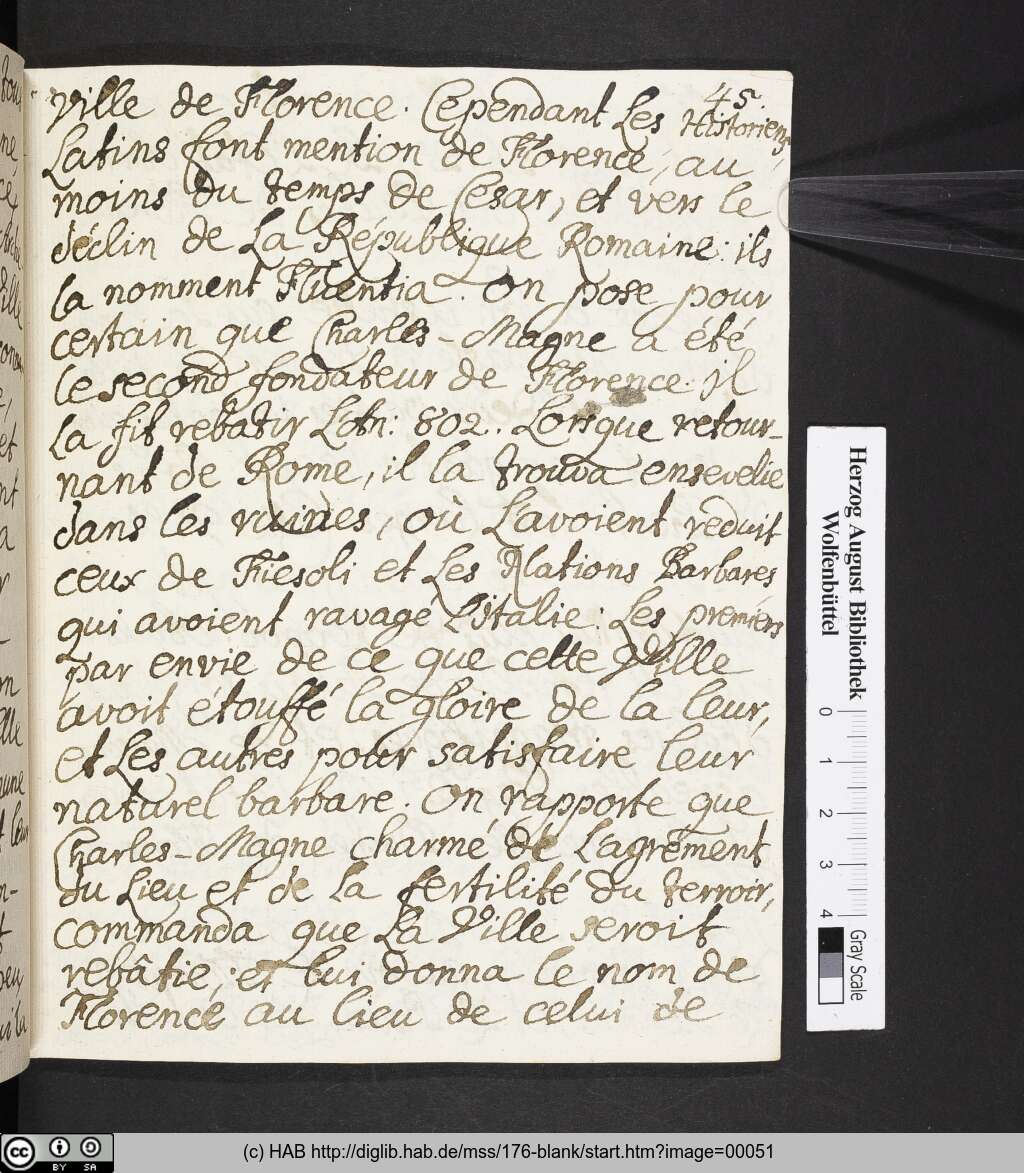 45.
Ville de Florence. Cependant Les Historiens
Latins font mention de Florence, au
moins du temps de Cesar, et vers le
déclin de La République Romaine: ils
la nomment Fluentia. On pose pour
certain que Charles-Magne a été
le second fondateur de Florence: il
la fit rebatir L'an: 802. Lorsque retour-
nant de Rome, il la trouva ensevelie
dans les ruines, où L'avoient reduit
ceux de Fiesoli et Les Nations Barbares
qui avoient ravage L'Italie: Les premiers
par envie de ce que cette Ville
avoit étouffé la gloire de la leur,
et Les autres pour satisfaire leur
naturel barbare. On rapporte que
Charles-Magne charmé de L'agrément
du Lieu et de La fertilité du terroir,
commanda que La Ville seroit
rebâtie; et lui donna le nom de
Florence au lieu de celui de
Herzog August Bibliothek
Wolfenbüttel
0 1 2 3 4 Gray Scale
cc BY SA
(c) HAB http://diglib.hab.de/mss/176-blank/start.htm?image=00051